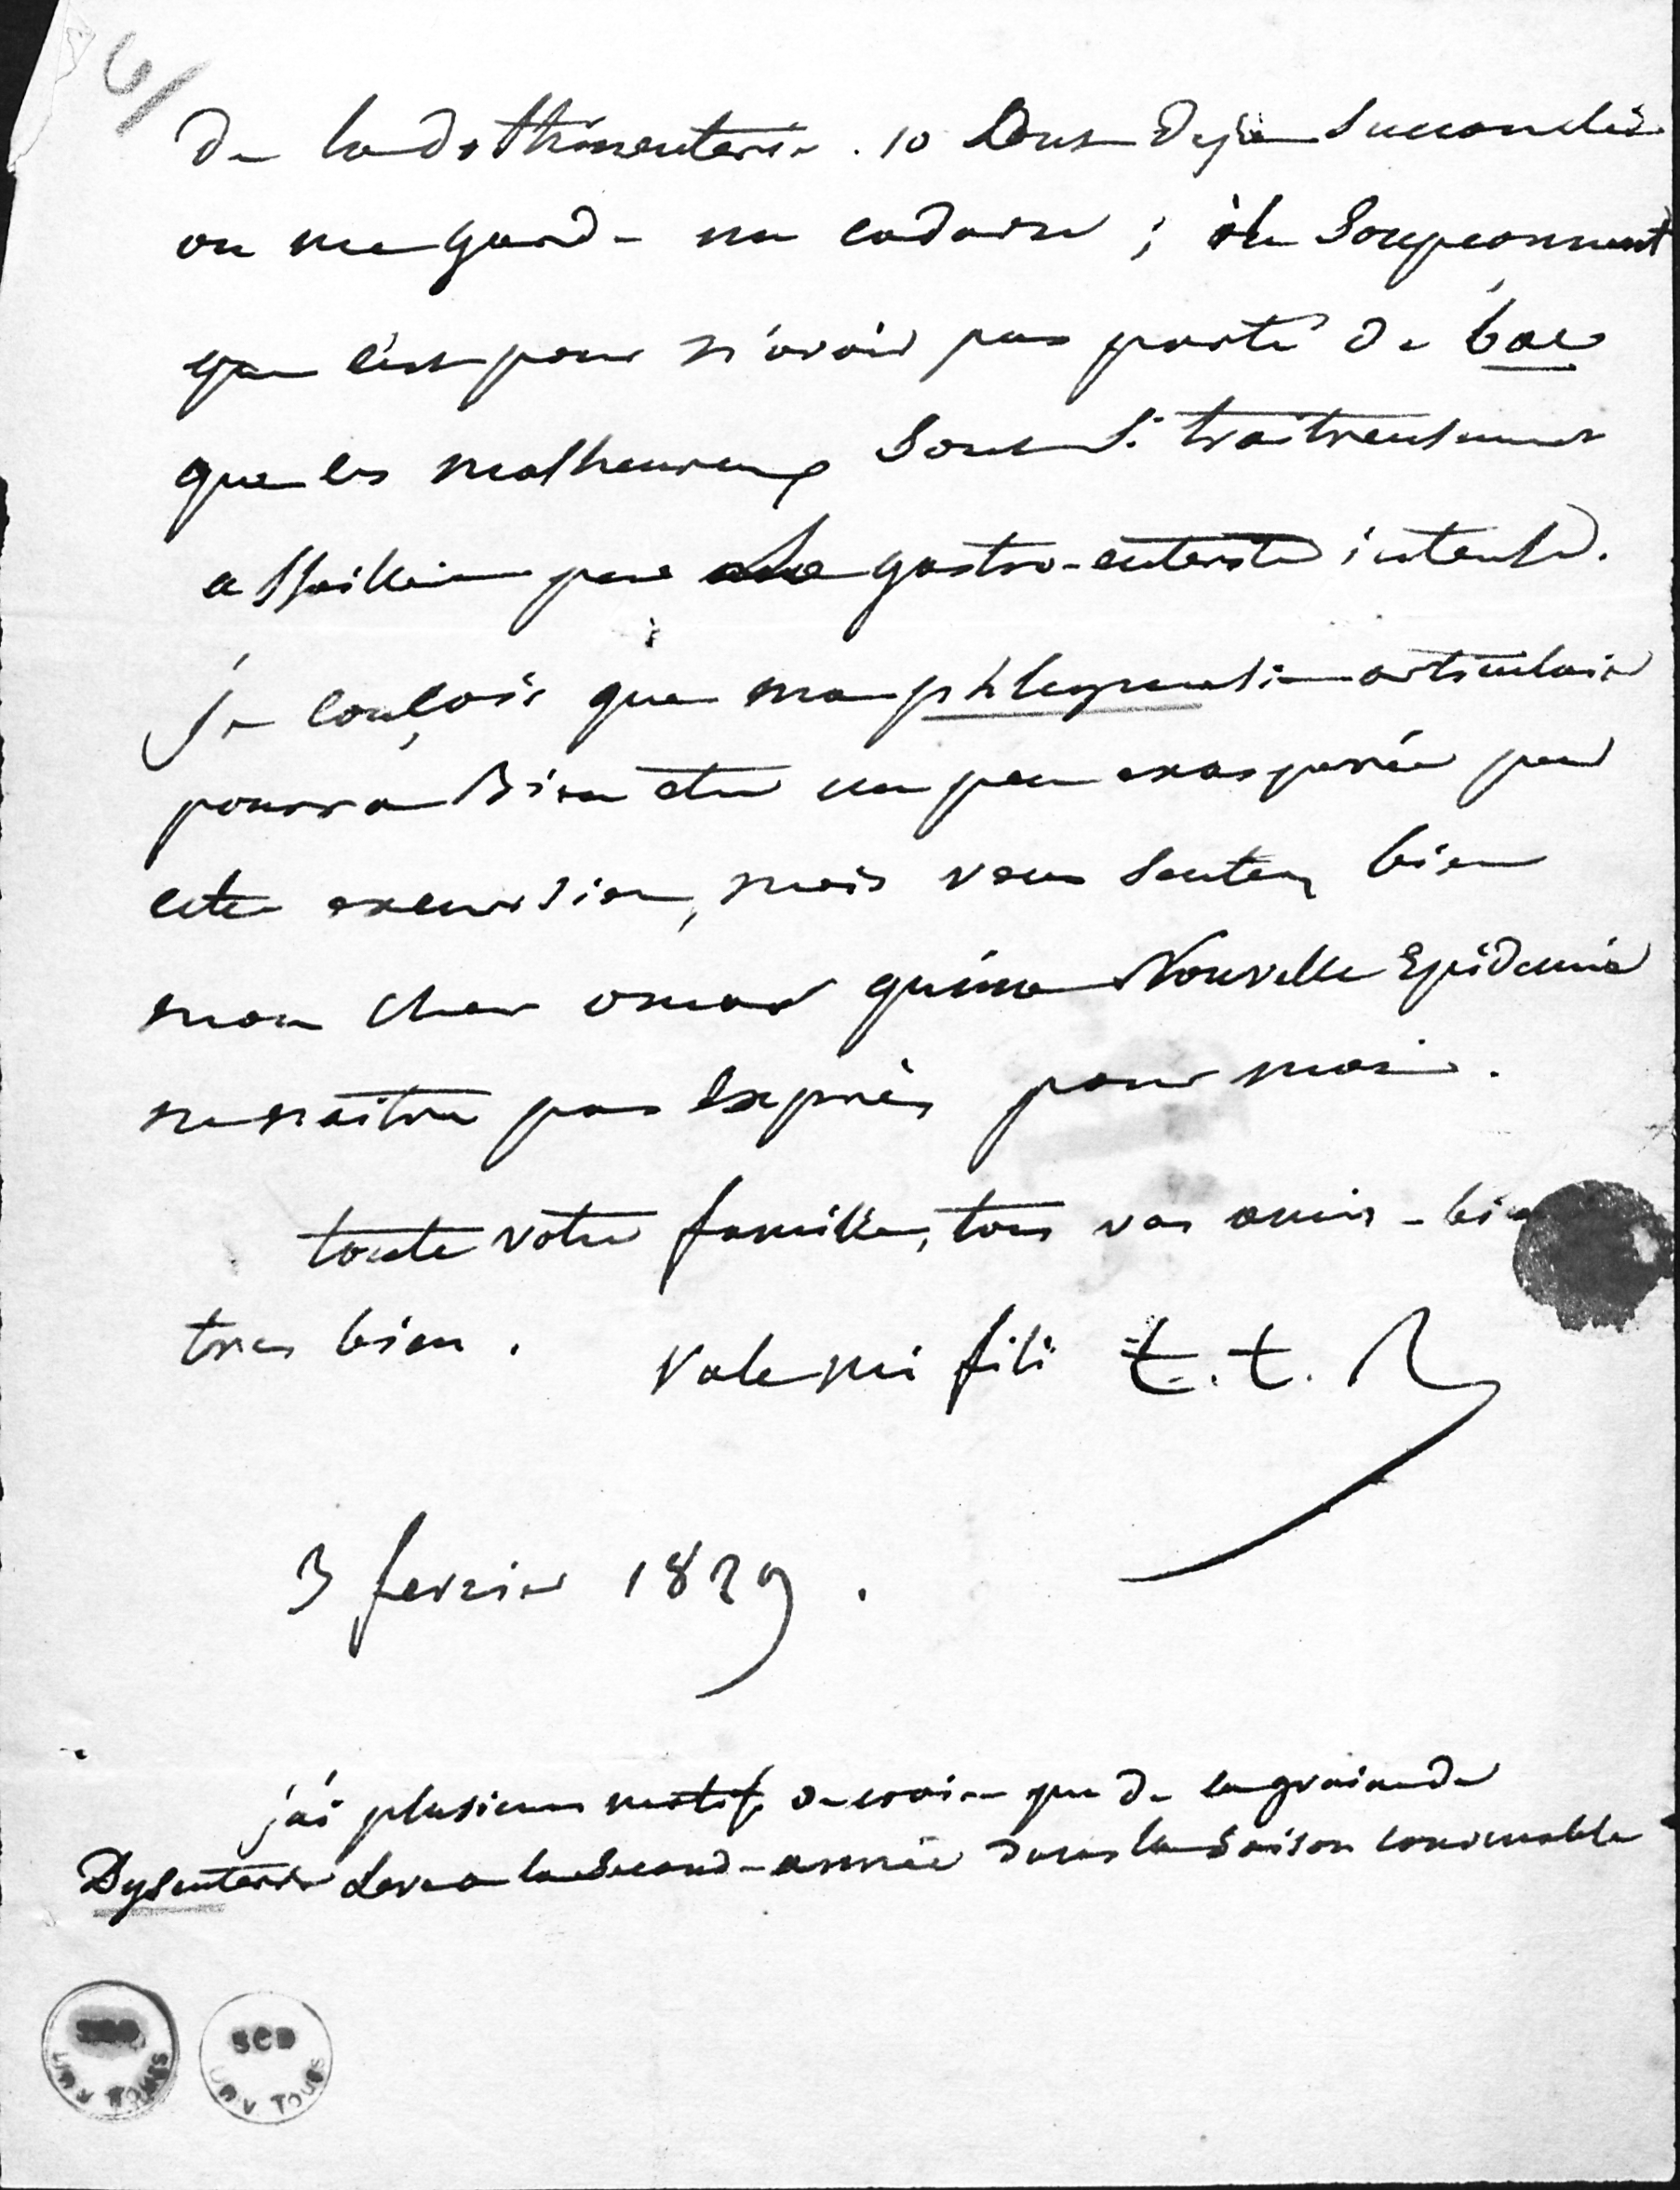 6/
De la dothinenterie. 10 sont deja succombés
on me garde un cadavre ; ils soupconnent
que c'est pour n'avoir pas porté de bas
que les malheureux sont si traitreusement
assaillis par gastro-enterite intense.
je conçois que ma phlegmasie articulaire
pourra bien etre un peu exasperée par
cette excursion, mais vous sentez bien
mon cher omar qu'une Nouvelle Epidemie
ne naitra pas exprès pour moi.
toute votre famille, tous vos amis - bien
tres bien. Vale mi fili t. t. B
3 fevrier 1829.
j'ai plusieurs motifs de croire que de la graine de
Dysenterie levera la seconde année dans la saison convenable
SCD UNIV TOURS
SCD UNIV TOURS